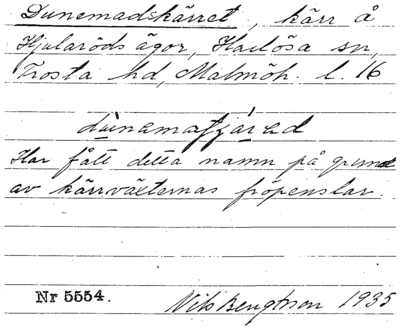 Dunemadskärret, kärr å
Hjularöds ägor, Harlösa sn,
Frosta hd, Malmöh. l. 16
Har fått detta namn på grund
av kärrväxternas fröpenslar.
Nr 5554.
Nils Bengtsson 1935